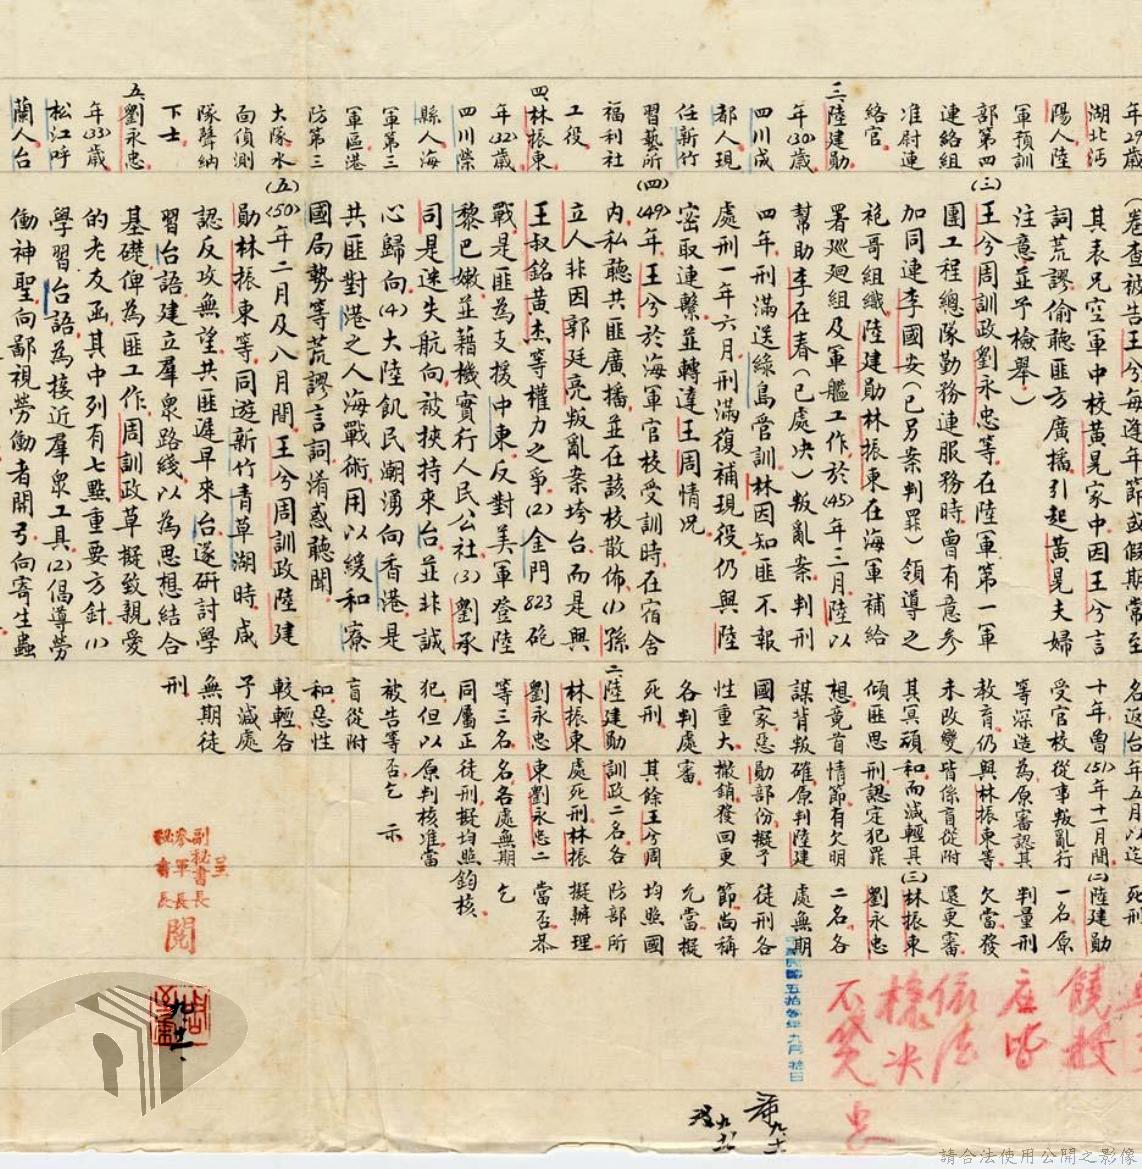 年29歲
湖北沔
陽人陸
軍預訓
部第四
連絡組
准尉連
絡官
三、陸建勛
年(30)歲
四川成
都人現
任新竹
習藝所
福利社
工役
四、林振東
年(32)歲
四川榮
縣人海
軍第三
軍區港
防第三
大隊水
面偵測
隊聲納
下士
五、劉永忠
年(33)歲
松江呼
蘭人台
(卷查被告王兮每逢年節或假期常至
其表兄空軍中校黃晃家中因王兮言
詞荒謬偷聽匪方廣播引起黃晃夫婦
注意並予檢舉)
(三)王兮周訓政劉永忠等在陸軍第一軍
團工程總隊勤務連服務時曾有意參
加同連李國安(已另案判罪)領導之
袍哥組織陸建勛林振東在海軍補給
署巡迴組及軍艦工作於(45)年三月陸以
幫助李在春(已處决)叛亂案判刑
四年刑滿送綠島管訓林因知匪不報
處刑一年六月刑滿復補現役仍與陸
密取連繫並轉達王周情况
(四)(49)年王兮於海軍官校受訓時在宿舍
內私聽共匪廣播並在該校散佈(1)孫
立人非因郭廷亮叛亂案垮台而是與
王叔銘黃杰等權力之爭(2)金門823砲
戰是匪為支援中東反對美軍登陸
黎巴嫩並藉機實行人民公社(3)劉承
司是迷失航向被挾持來台並非誠
心歸向(4)大陸飢民潮湧向香港是
共匪對港之人海戰術用以緩和寮
國局勢等荒謬言詞淆惑聽聞
(五)(50)年二月及八月間王兮周訓政陸建
勛林振東等同遊新竹青草湖時咸
認反攻無望共匪遲早來台遂研討學
習台語建立羣衆路綫以為思想結合
基礎俾為匪工作周訓政草擬致親愛
的老友函其中列有七點重要方針(1)
學習台語為接近羣衆工具(2)倡導勞
働神聖向鄙視勞働者開弓向寄生蟲
名返台
十年曾
受官校
等深造
教育仍
未改變
其冥頑
傾匪思
想竟首
謀背叛
國家惡
性重大
各判處
死刑
二、陸建勛
林振東
劉永忠
等三名
同屬正
犯但以
被告等
盲從附
和惡性
較輕各
予減處
無期徒
刑
年五月以迄
(51)年十一月間
從事叛亂行
為原審認其
與林振東等
皆係盲從附
和而減輕其
刑認定犯罪
情節有欠明
確原判陸建
勛部份擬予
撤銷發回更
審
其餘王兮周
訓政二名各
處死刑林振
東劉永忠二
名各處無期
徒刑擬均照
原判核准當
否乞示
死刑
(二)陸建勛
一名原
判量刑
欠當發
還更審
(三)林振東
劉永忠
二名各
處無期
徒刑各
節尚稱
允當擬
均照國
防部所
擬辦理
當否恭
乞
鈞核
呈
副秘書長
參軍長
秘書長
閱
九十一
應皆
依法
槍决
不貸
九月拾日
請合法使用公開之影像